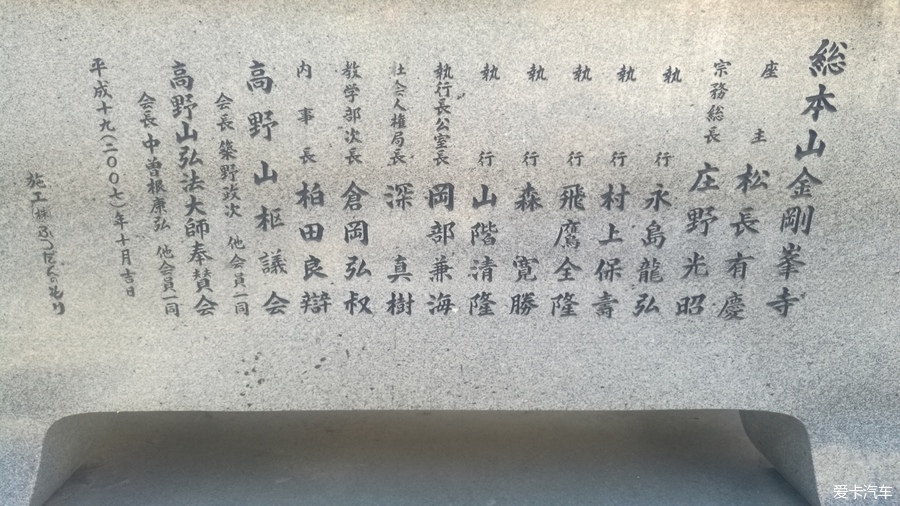 総本山金剛峯寺
座主 松長有慶
宗務総長 庄野光昭
執行 永島龍弘
執行 村上保壽
執行 飛鷹全隆
執行 森寛勝
執行 山階清隆
執行長公室長 岡部兼海
社会人権局長 深真樹
教学部次長 倉岡弘叔
内事長 柏田良辯
高野山枢議会
会長 築野政次 他会員一同
高野山弘法大師奉賛会
会長 中曽根康弘 他会員一同
平成十九(二〇〇七)年十月吉日
施工
爱卡汽车